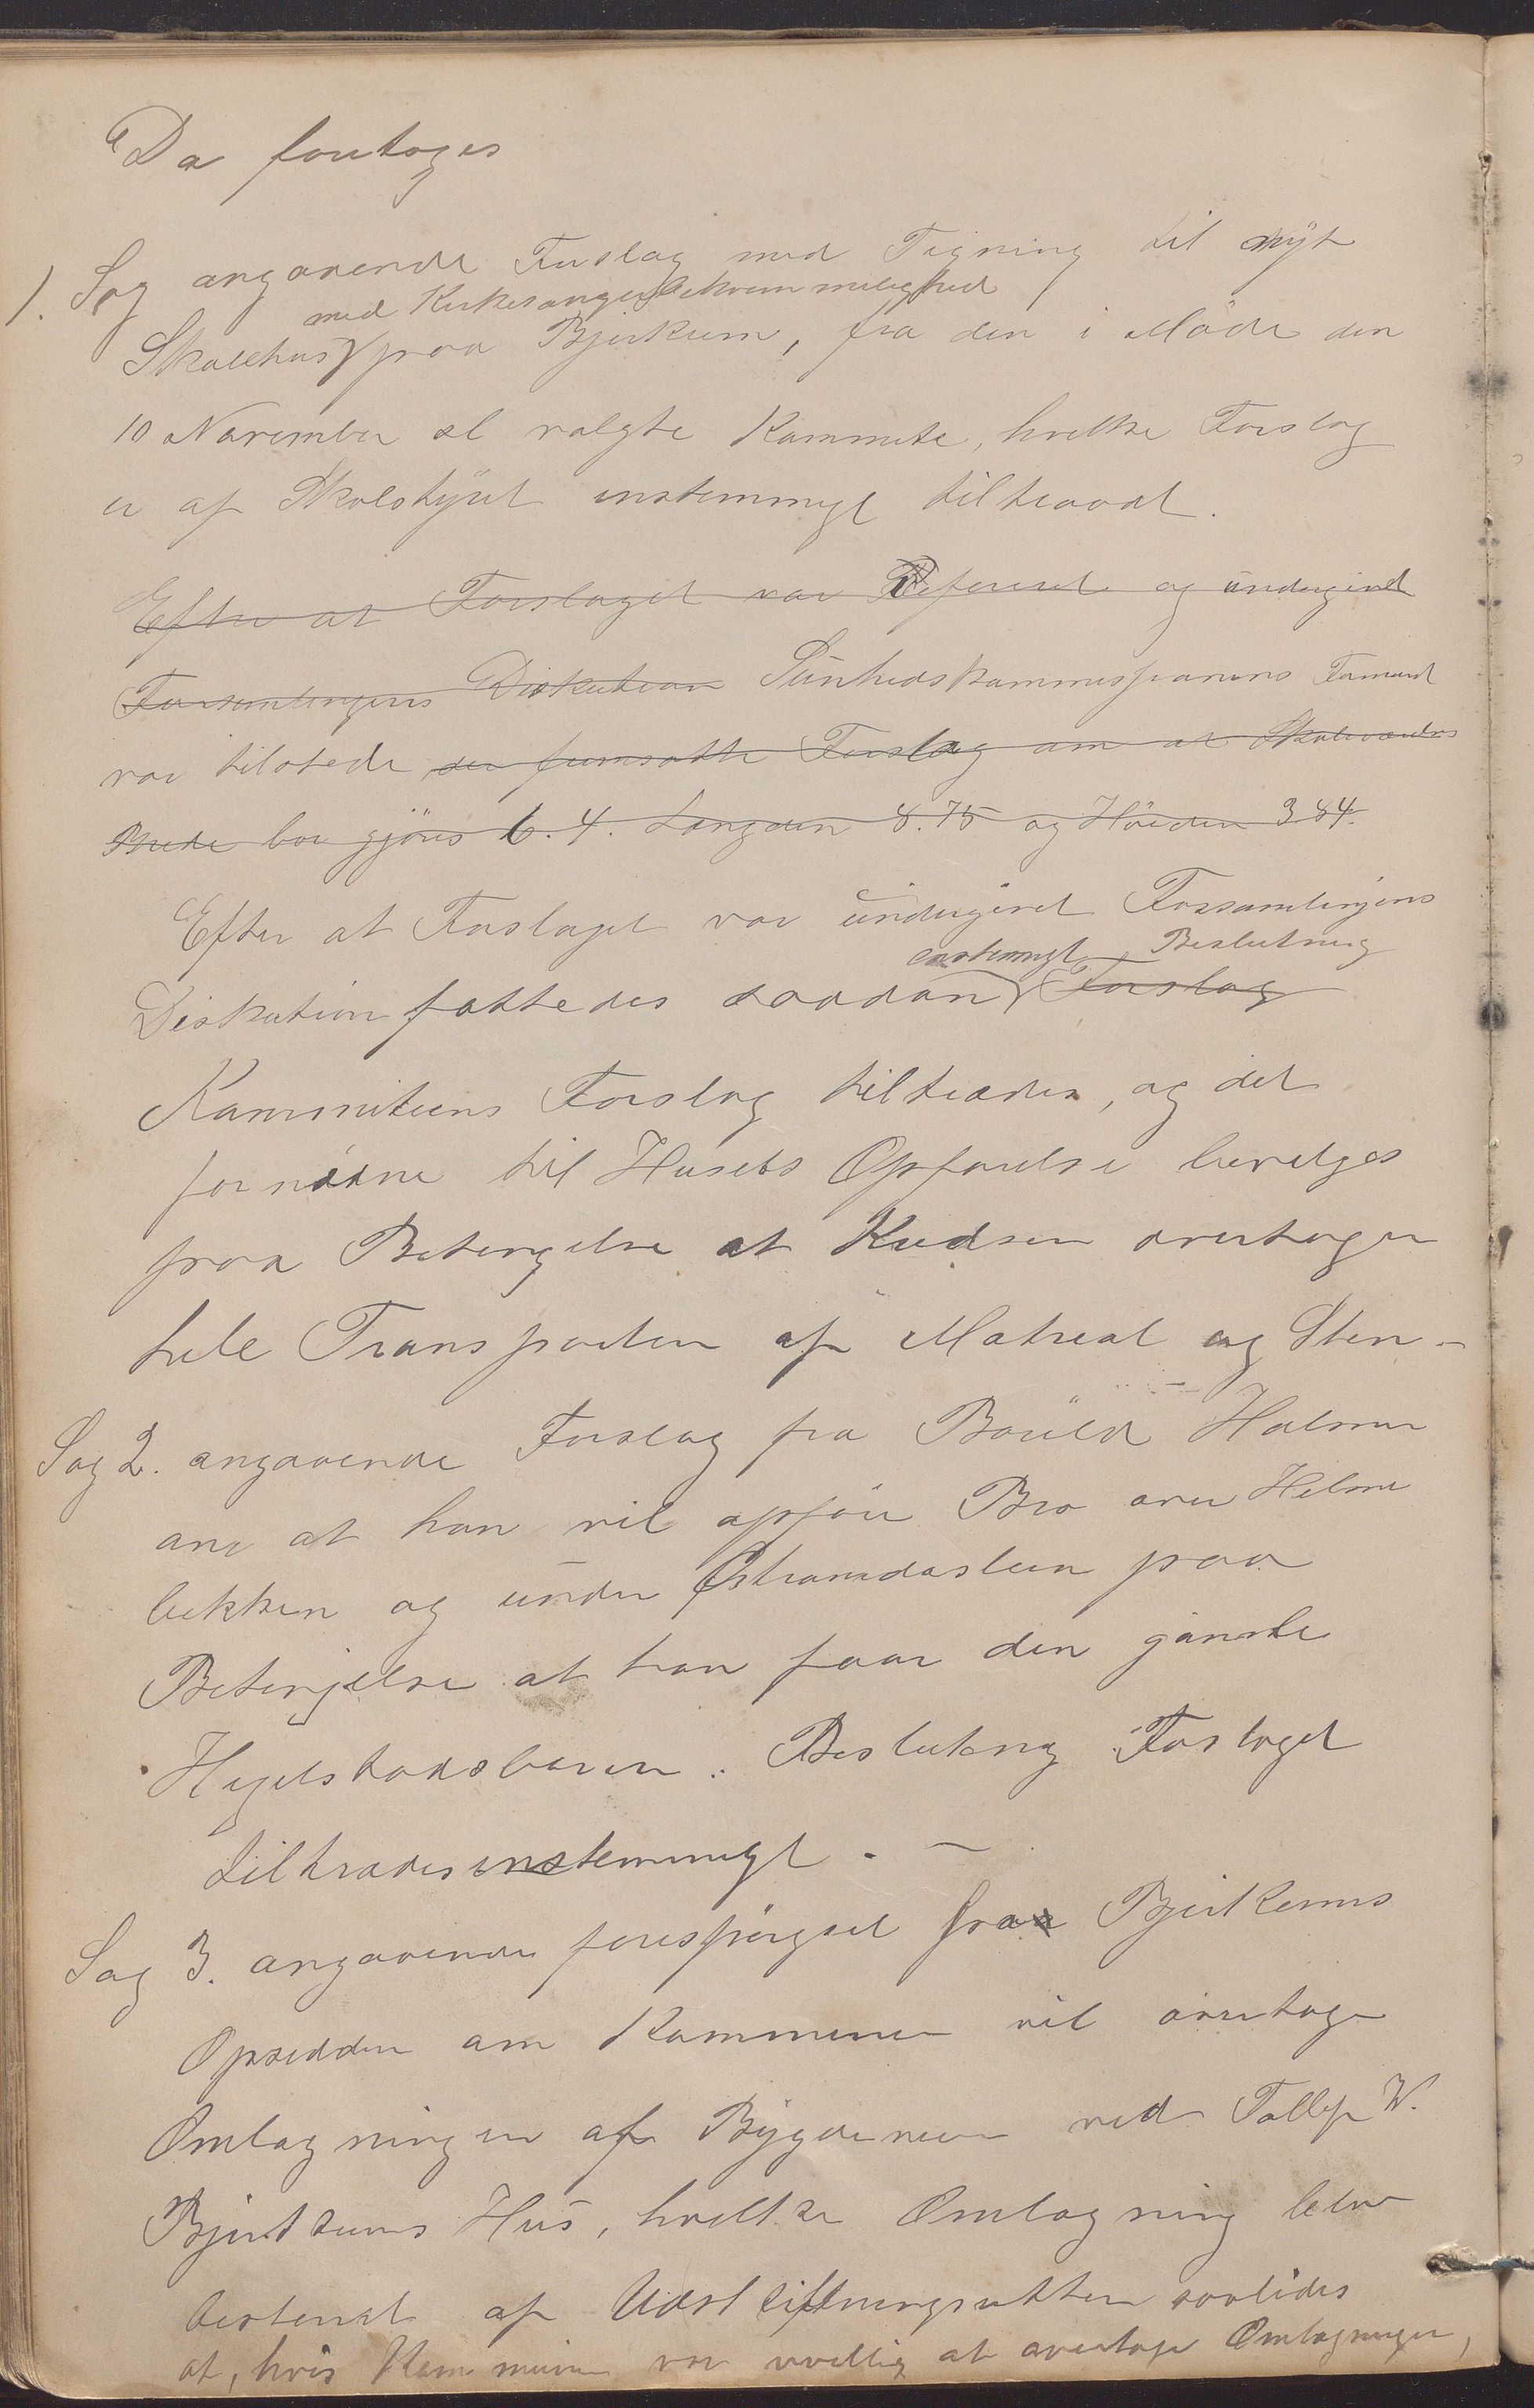 Da foretoges
1. Sag angaaende Forslag med Tigning til nyt
med Kirkesangerbekvemmelighed
Skolehus paa Bjerkrem, fra den i Möde den
10 November sl valgte Kommite, hvilke Forslag
er af Skolestyret enstemmigt tiltraadt.
Efter at Forslaget var Referert og undergivet
Forsamlingens Diskution Sunhedskommissionens Formand
var tilstede der fremsatte Forslag om at Skoleværelsets
Brede bør gjöres 6.4. Længden 8.75 og Höiden 3 84.
Efter at Forslaget var undergivet Forsamlingens
enstemmigt Beslutning
Diskution fattedes saadan Forslag
Kommiteens Forslag tiltrædes, og det
fornödne til Husets Opförelse bevilges
paa Betingelse at Kredsen overtager
hele Transporten af Matreal og Sten –
Sag 2. angaaende Forslag fra Bouild Holmen
om at han vil opföre Bro over Helme
bekken og under paa
Betingelse at han faar den ganske
Hegelstadsbroen. Beslutning Forslaget
tiltrædes enstemmigt. –
Sag 3. angaaende forespörgsel fra Bjerkrems
Opsidder om Kommunen vil overtage
Omlægningen af Bygdeveien ved Tollef W.
Bjerkrems Hus, hvilke Omlægning blev
bestemt af Udskiftningsretten saaledes
at, hvis Kommunen var uvillig at overtage Omlægningen,